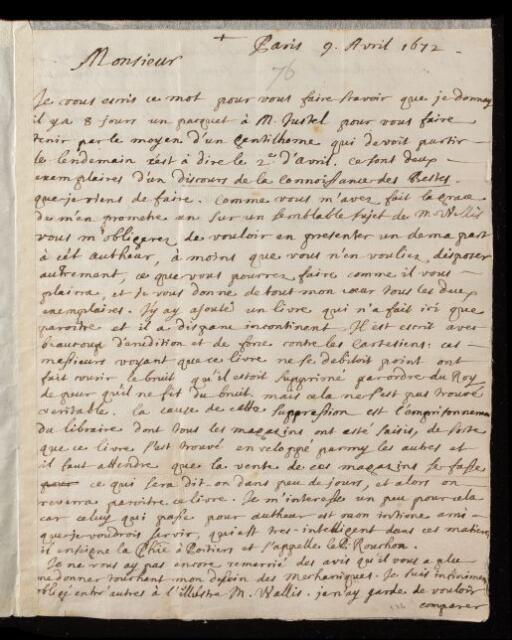 + Paris 9. Avril 1672.
Monsieur
76
Je vous escris ce mot pour vous faire scavoir que je donnay
il y a 8 jours un pacquet à M. Justel pour vous faire
tenir par le moyen d'un Gentilhome qui devoit partir
le lendemain c'est à dire le 2e d'Avril. ce sont deux
exemplaires d'un Discours de la Connoissance des Bestes
que je viens de faire. Comme vous m'avez fait la grace
de m'en promettre un sur un semblable sujet de M. Wallis
vous m'obligerez de vouloir en presenter un de ma part
à cet autheur, à moins que vous n'en vouliez disposer
autrement, ce que vous pourrez faire comme il vous
plaira, et je vous donne de tout mon coeur tous les deux
exemplaires. J'y ay ajouté un livre qui n'a fait ici que
paroitre et il a disparu incontinent. Il est escrit avec
beaucoup d'erudition et de force contre les Cartesiens: ces
messieurs voyant que ce livre ne se debitoit point ont
fait courir le bruit qu'il estoit supprimé par ordre du Roy
de peur qu'il ne fit du bruit, mais cela ne s'est pas trouvé
veritable. la cause de cette suppression est l'emprisonnement
du libraire dont tous les magazins ont esté saisis, de sorte
que ce livre s'est trouvé enveloppé parmy les autres et
il faut attendre que la vente de ces magazins se fasse
ce qui sera dit-on dans peu de jours, et alors on
reverra paroitre ce livre. Je m'interesse un peu pour cela
car celuy qui passe pour autheur est mon intime ami
que je voudrois servir, qui est tres-intelligent dans ces matieres
il enseigne la Phie à Poitiers et s'appelle le P. Rochon.
Je ne vous ay pas encore remercié des avis qu'il vous a plu
me donner touchant mon dessein des Mechaniques. Je suis infiniment
obligé entr'autres à l'illustre M. Wallis. je n'ay garde de vouloir
comparer